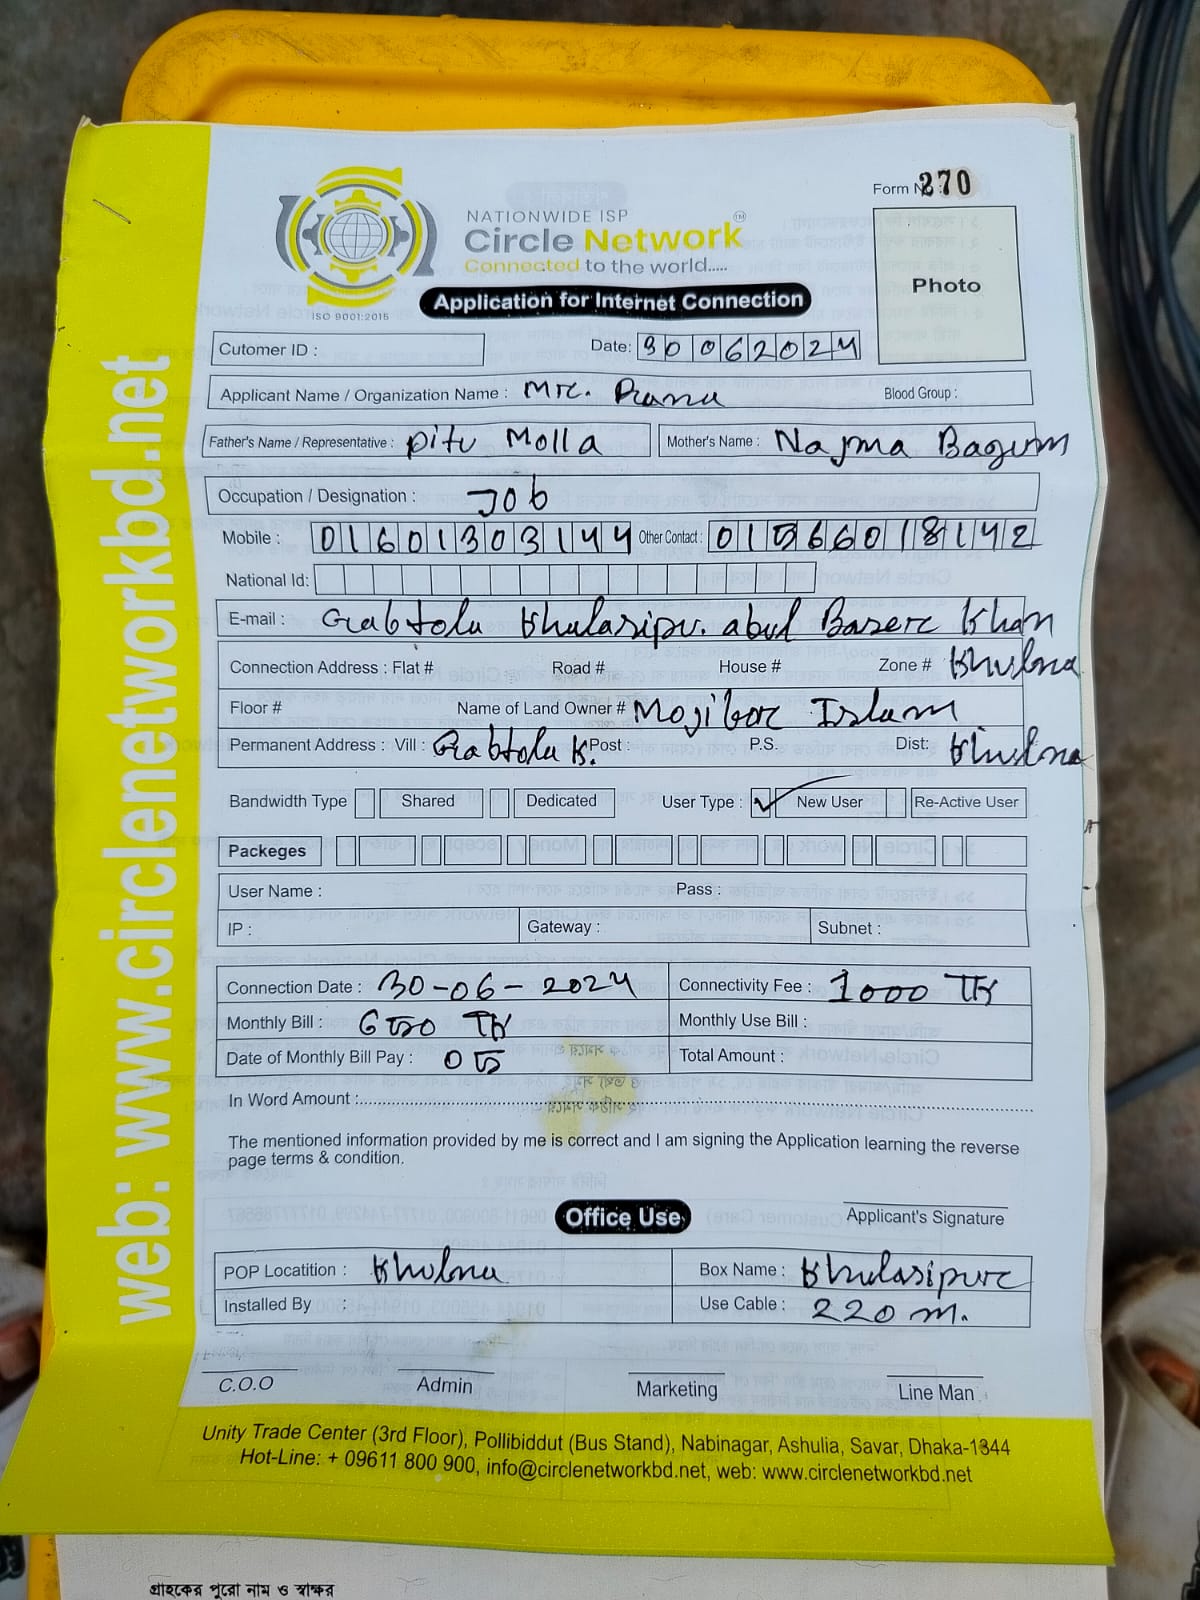 Form No : 270
NATIONWIDE ISP
Circle Network ™
Connected to the world.....
ISO 9001:2015
Application for Internet Connection
Photo
Cutomer ID :
Date: 30062024
Applicant Name / Organization Name : Mr. Rana Blood Group :
Father's Name / Representative : Ditu Molla Mother's Name : Najma Bagum
Occupation / Designation : Job
Mobile : 01601303144 Other Contact : 01566018142
National Id:
E-mail : Gabtola Khalasipur. abul Baser Khan
Connection Address : Flat # Road # House # Zone # Khulna
Floor # Name of Land Owner # Mojibor Islam
Permanent Address : Vill : Gabtola K. Post : P.S. Dist: Khulna
Bandwidth Type Shared Dedicated User Type : ✓ New User Re-Active User
Packeges
User Name : Pass :
IP : Gateway : Subnet :
Connection Date : 30-06-2024 Connectivity Fee : 1000 TK
Monthly Bill : 650 TK Monthly Use Bill :
Date of Monthly Bill Pay : 05 Total Amount :
In Word Amount :
The mentioned information provided by me is correct and I am signing the Application learning the reverse
page terms & condition.
Applicant's Signature
Office Use
POP Locatition : Khulna Box Name : Khulasipur
Installed By : Use Cable : 220 m.
C.O.O Admin Marketing Line Man
Unity Trade Center (3rd Floor), Pollibiddut (Bus Stand), Nabinagar, Ashulia, Savar, Dhaka-1344
Hot-Line: + 09611 800 900, info@circlenetworkbd.net, web: www.circlenetworkbd.net
web: www.circlenetworkbd.net
গ্রাহকের পুরো নাম ও স্বাক্ষর